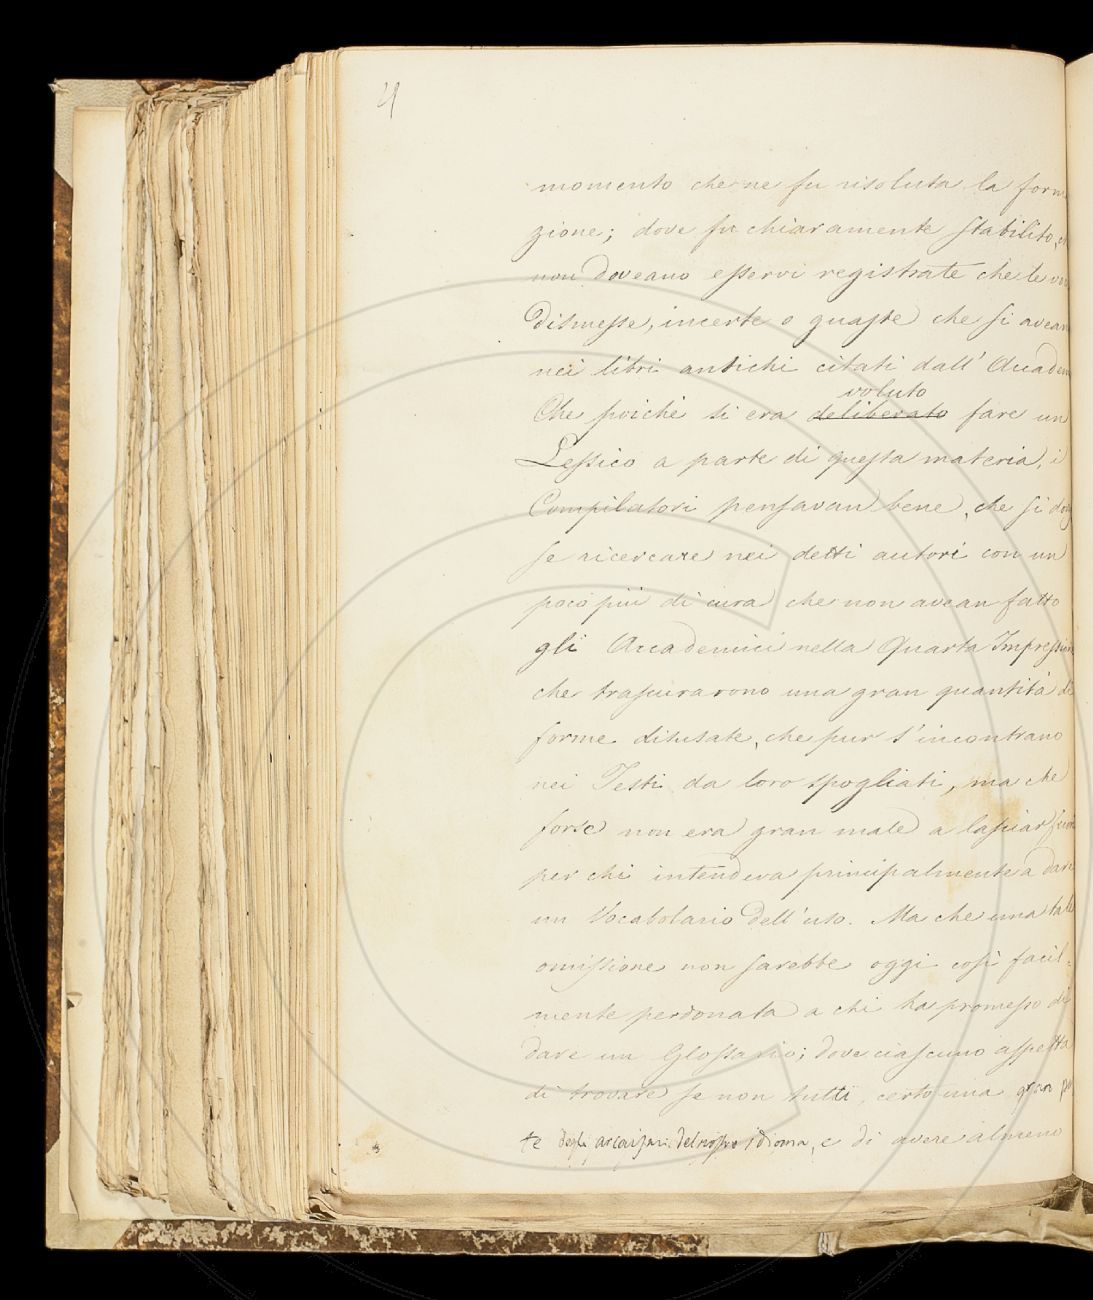 momento che ne fu risoluta la form
zione; dove fu chiaramente stabilito,
non doveano esservi registrate che le
dismesse, incerte o guaste che si avean
nei libri antichi citati dall'
voluto
Che poichè si era deliberato fare un
Lessico a parte di questa materia, i
Compilatori pensavan bene, che si
se ricercare nei detti autori con un
poco più di cura che non avean fatto
gli Accademici nella Quarta Impression
che trascurarono una gran quantità di
forme disusate, che pur s'incontrano
nei Testi da loro spogliati, ma che
forse non era gran male a lasciar
per chi intendeva principalmente a dare
un Vocabolario dell'uso. Ma che una tale
omissione non sarebbe oggi così facil-
mente perdonata a chi ha promesso di
dare un Glossario; dove ciascuno aspetta
di trovare se non tutti, certo una gran
te degli arcaismi del nostro idioma, e di avere almeno